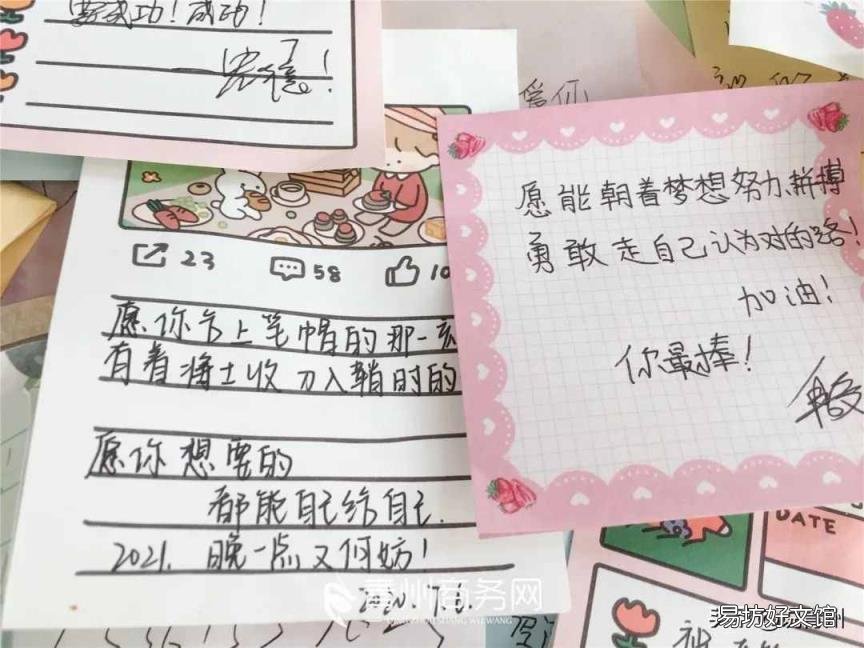 要成功！成功！
愿能朝着梦想努力、拼搏
勇敢走自己认为对的路！
加油！
你最棒！
23
58
10
愿你合上笔帽的那一刻
有着将士收刀入鞘时的
愿你想要的
都能自己给自己.
2021. 晚一点又何妨！
2020.7.6.
DATE
青州商务网
QINGZHOU SHANG WU WANG
易坊好文馆